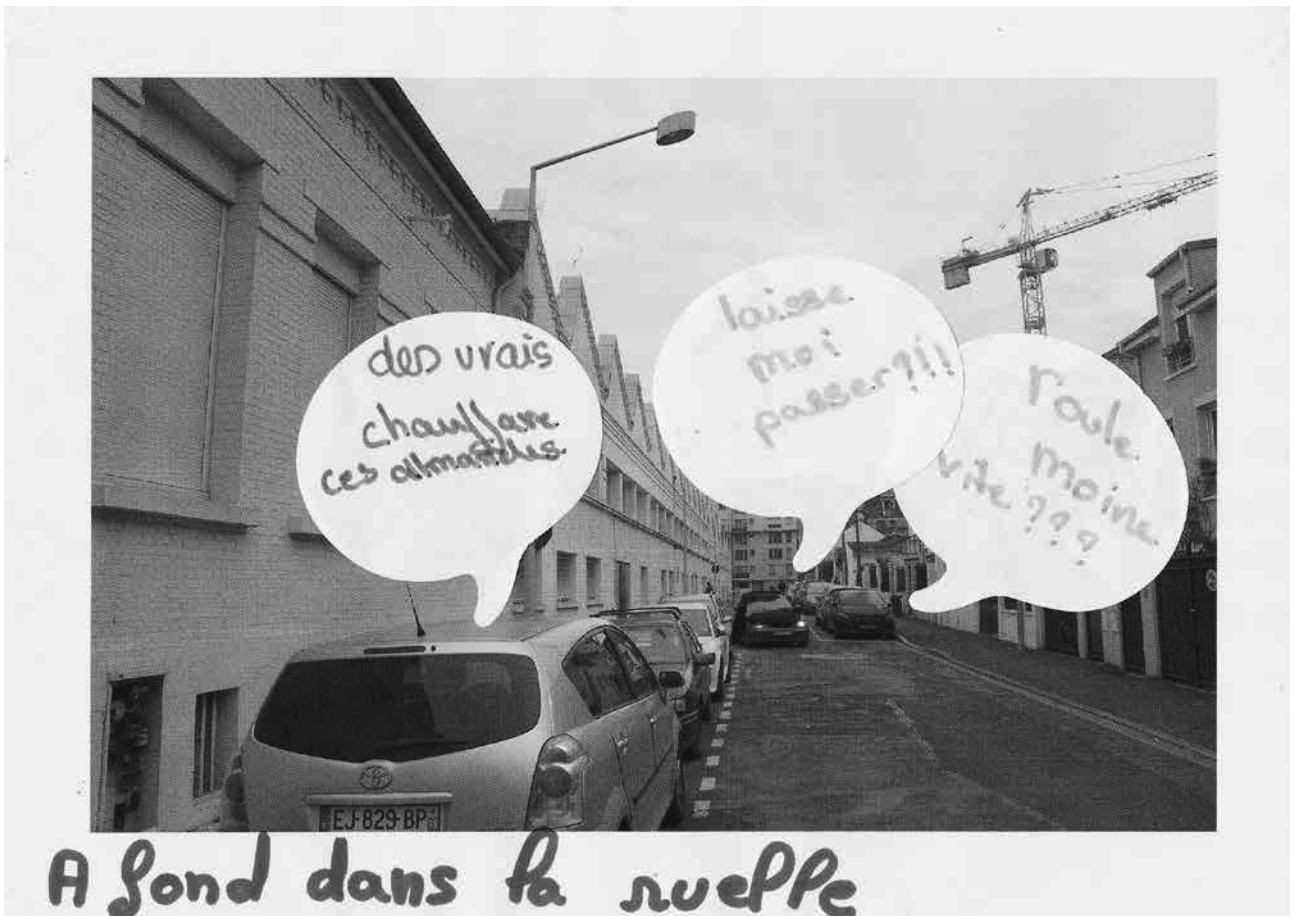 des vrais
chauffare
ces dimanches.
laisse
moi
passer?!!!
roule
moine
vite???
EJ-829-BP
A fond dans la ruelle